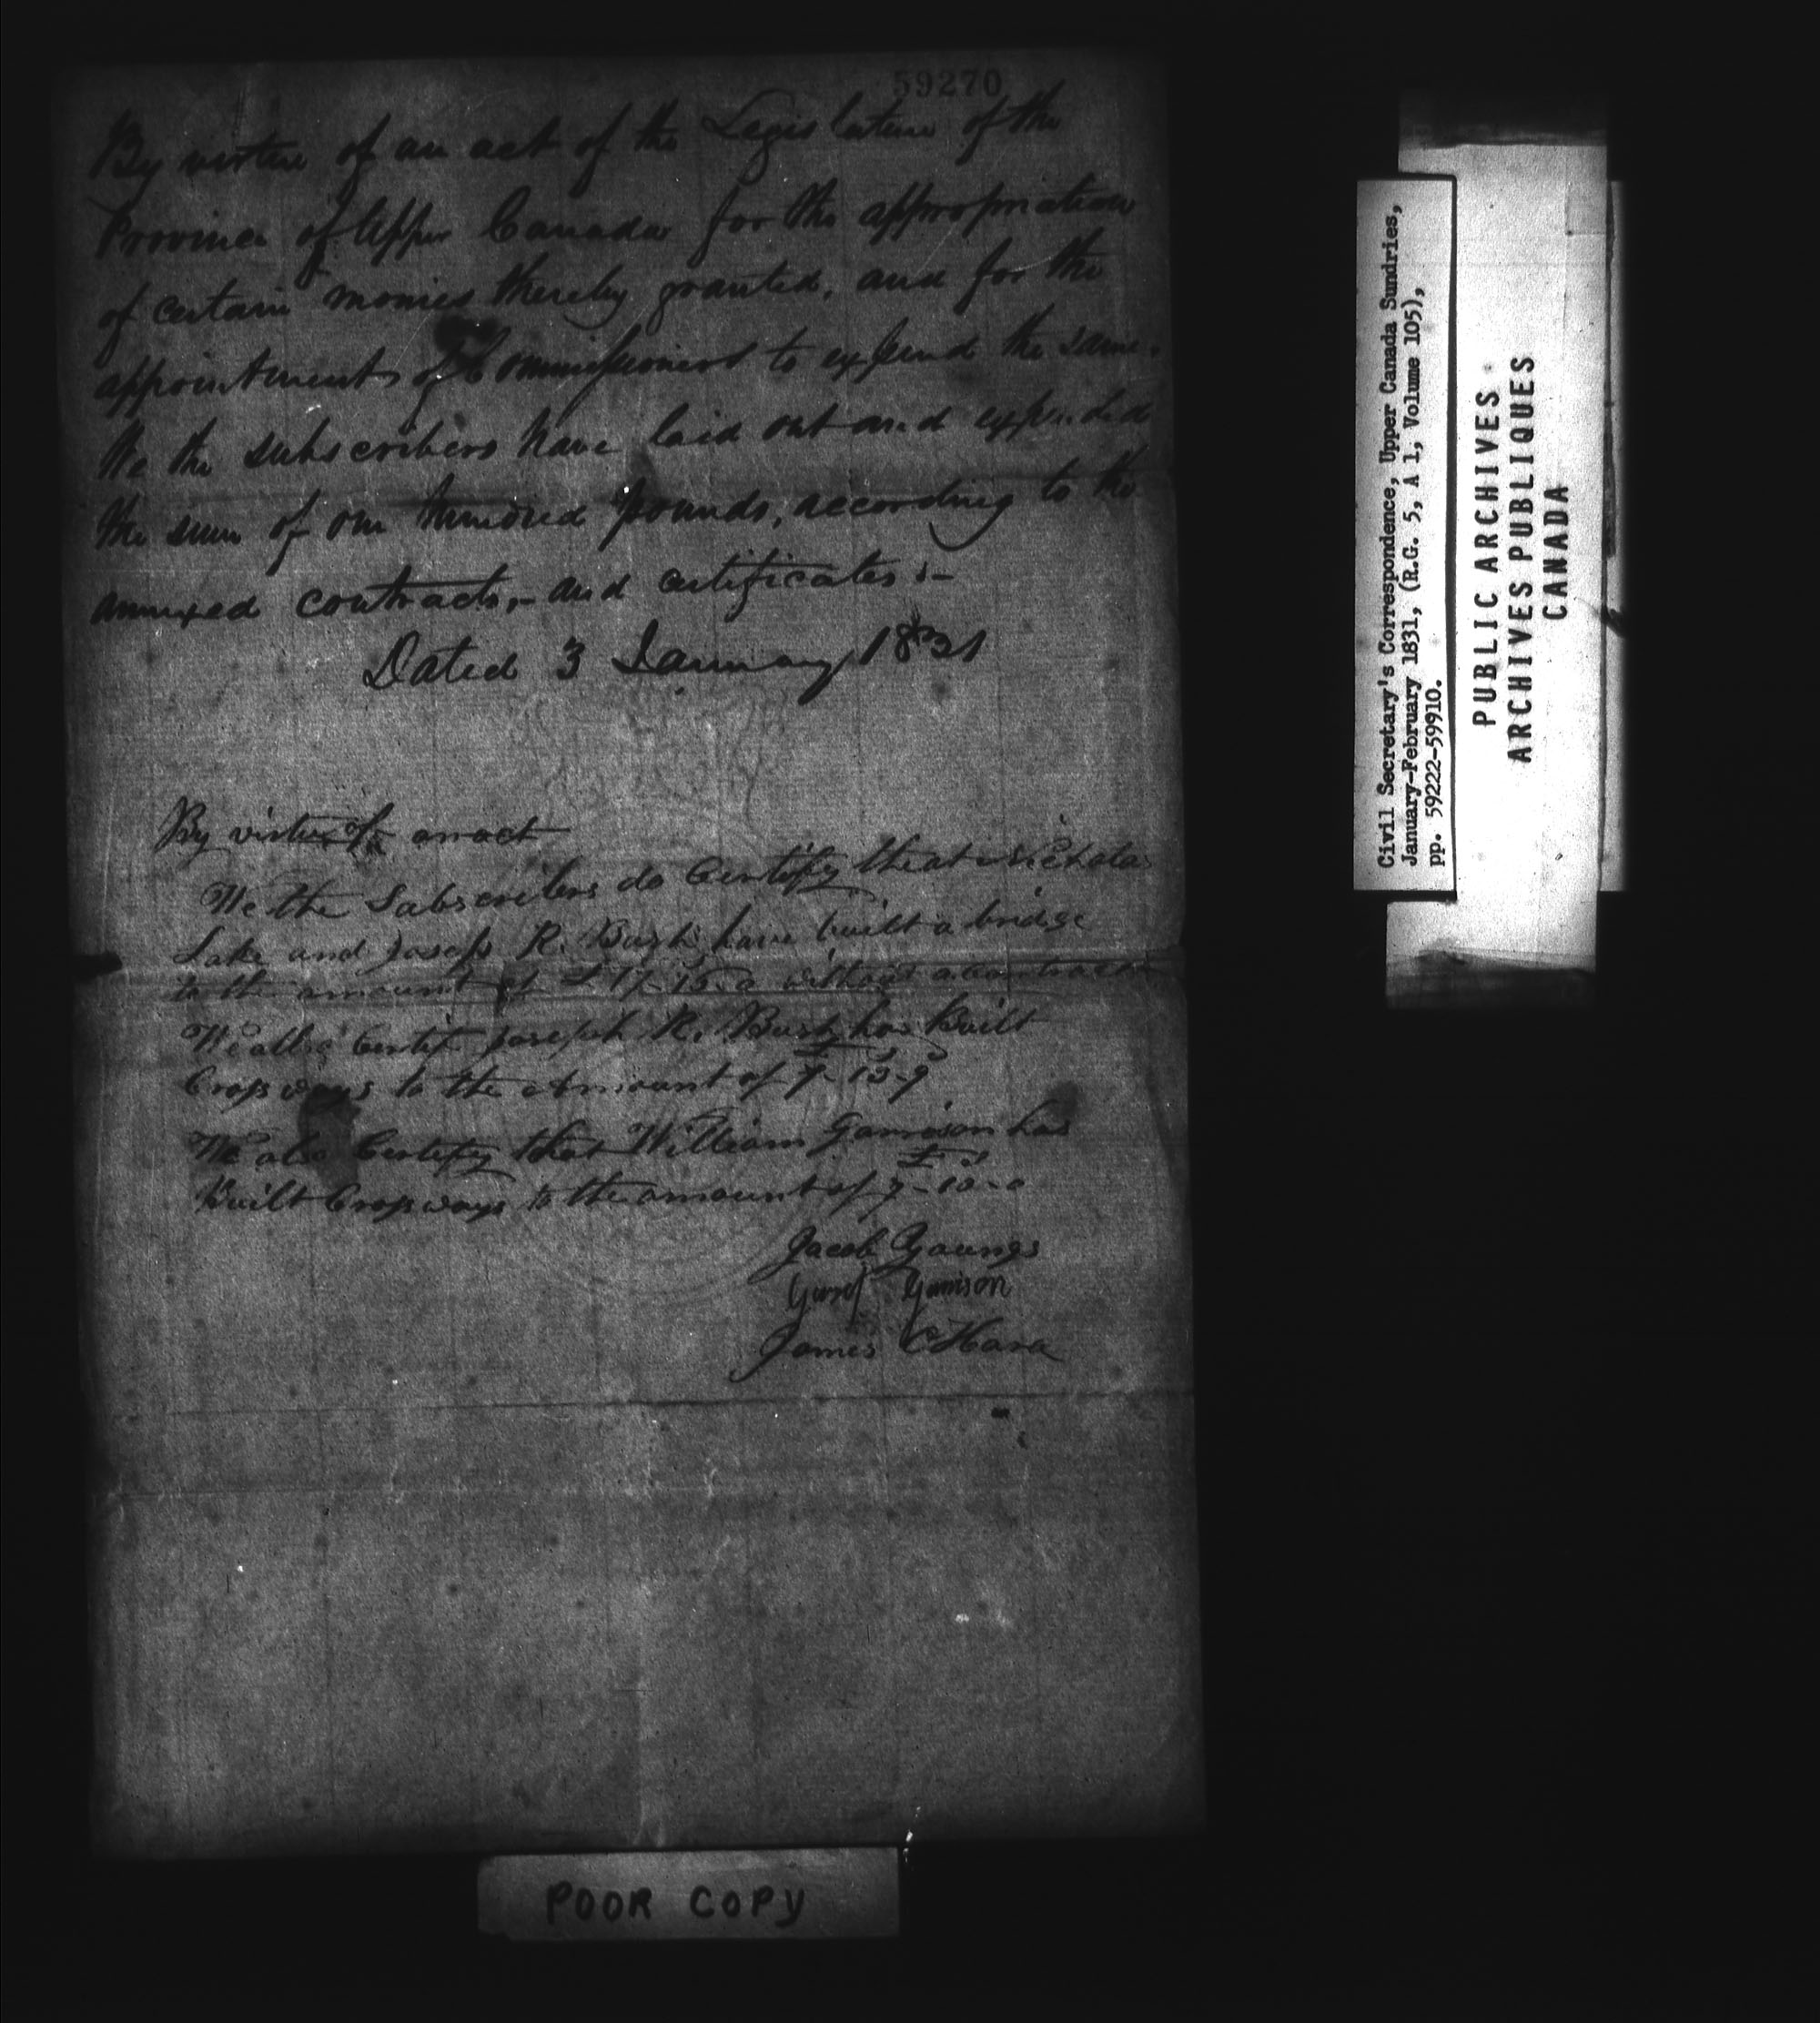 59270
By virtue of an act of the Legislature of the
Province of Upper Canada for the appropriation
of certain monies thereby granted, and for the
appointment of Commissioners to expend the same.
We the subscribers have laid out and expended
the sum of one hundred pounds, according to the
annexed contracts,- and certificates :-
Dated 3 January 1831
By virtue of an act
We the Subscribers do Certify that
Lake and Joseph R. Bush have built a bridge
to the amount of £ 17-15-0 without a contract
We allso Certify Joseph R. Bush has Built
Crossways to the Amount of £ 7- 13-9
We also Certify that William Garrison has
Built Crossways to the amount of £ 7-10-0
Jacob Youngs
Garrison
James OHara
POOR COPY
Civil Secretary's Correspondence, Upper Canada Sundries,
January-February 1831, (R.G. 5, A 1, Volume 105),
pp. 59222-59910.
PUBLIC ARCHIVES
ARCHIVES PUBLIQUES
CANADA